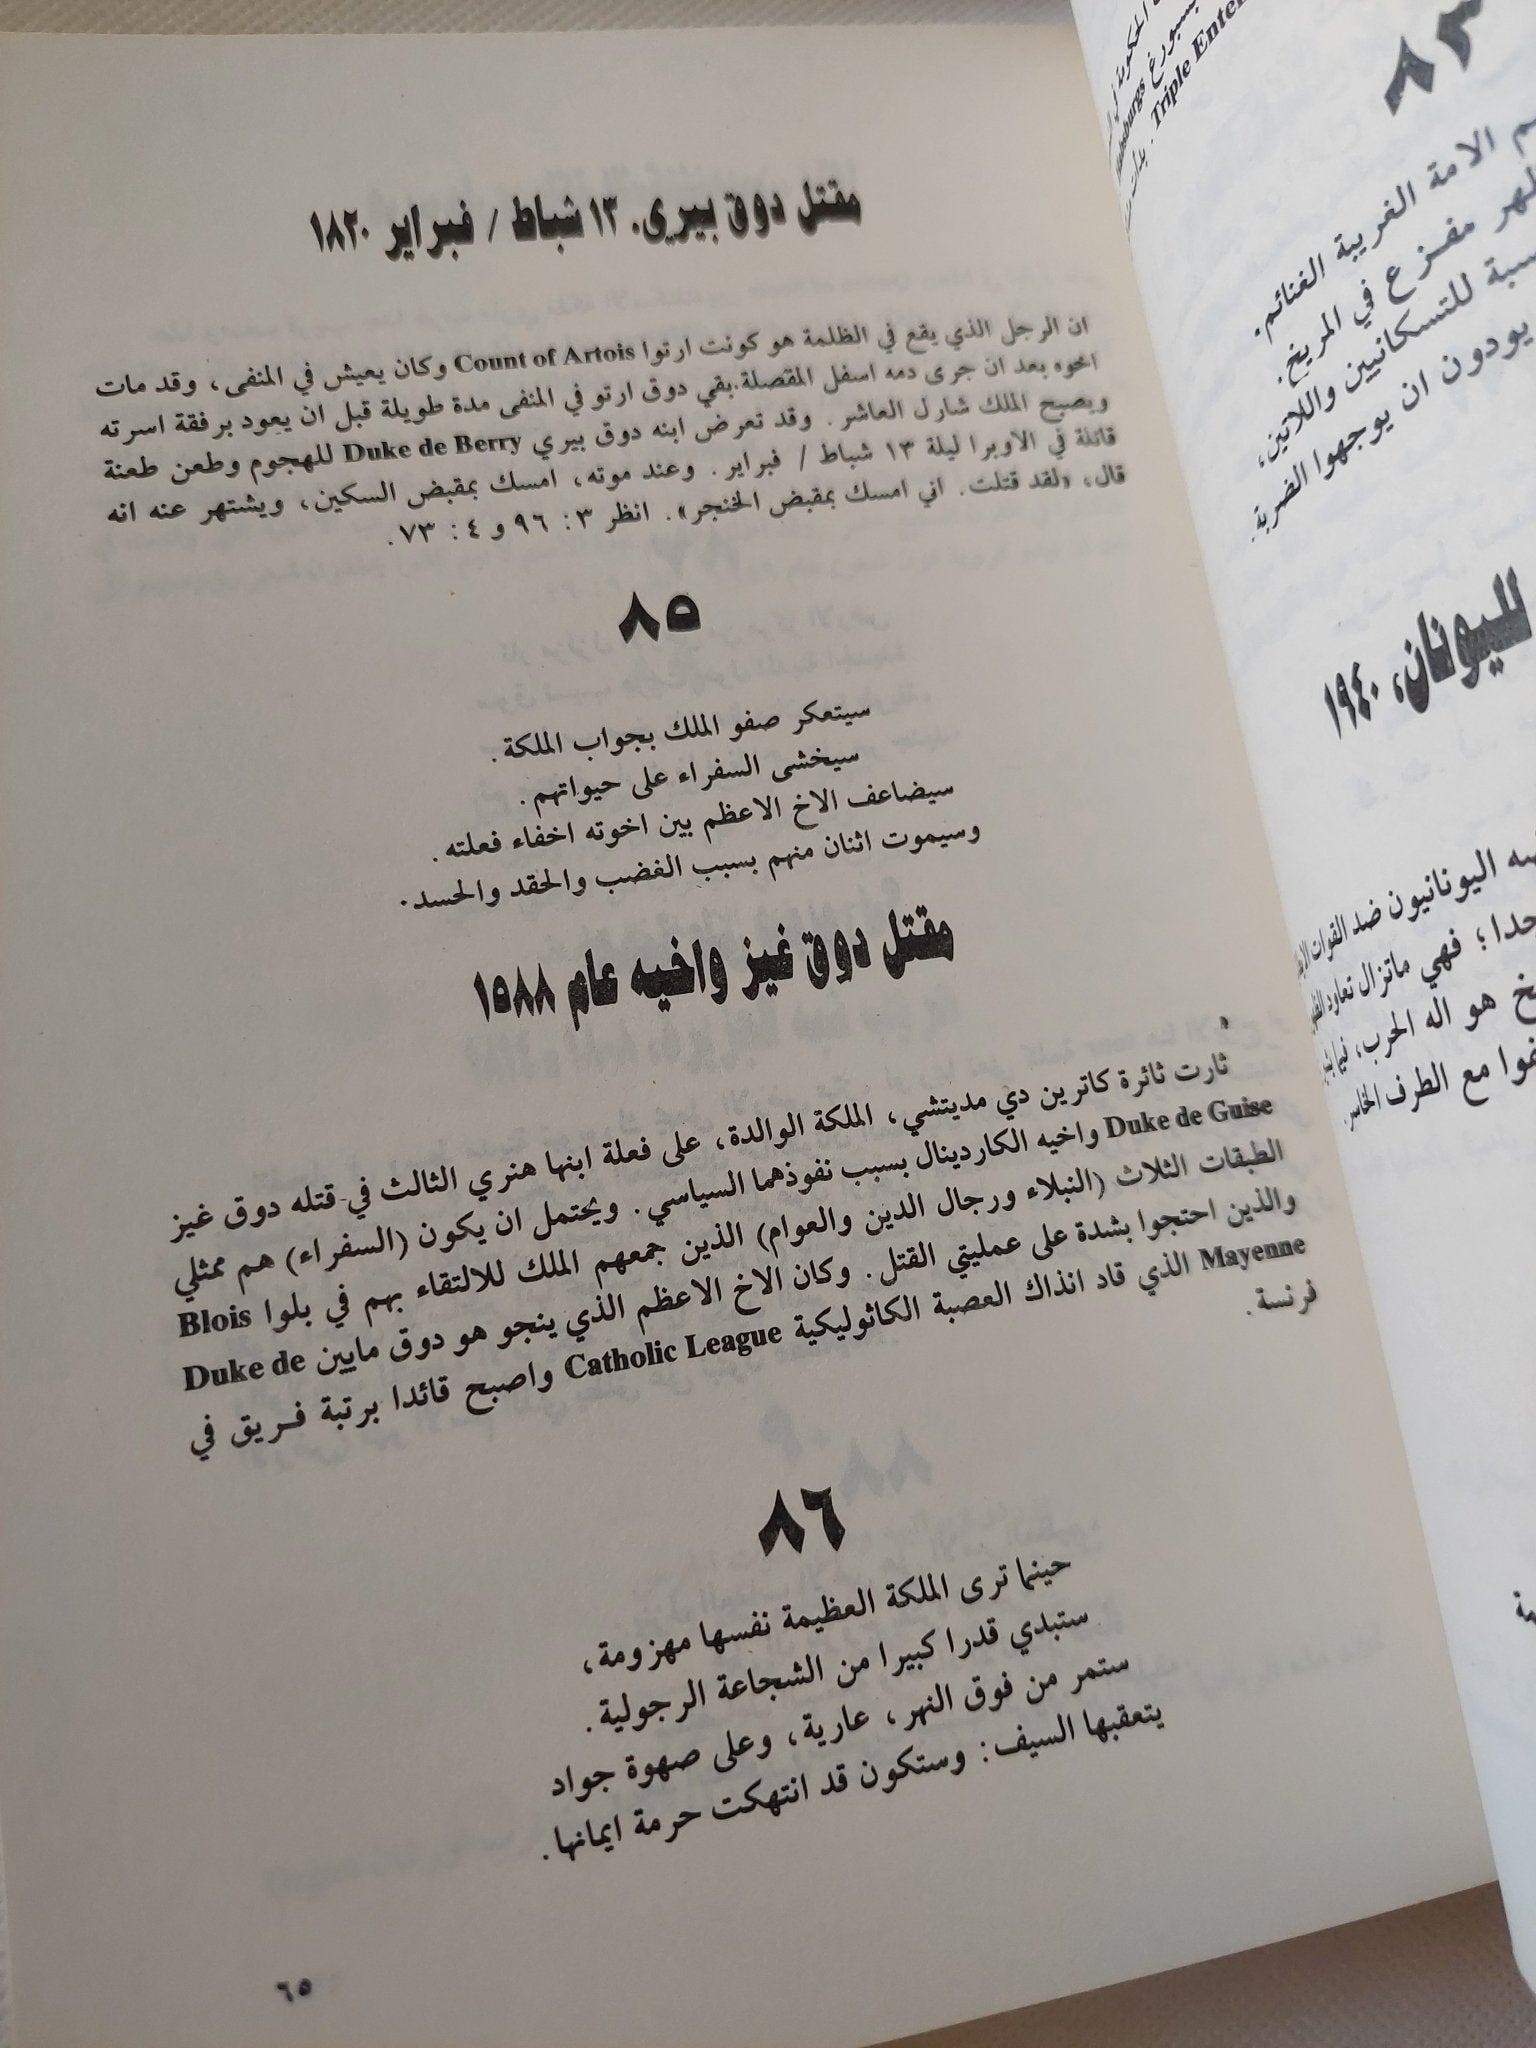 مقتل دوق بيري. ١٣ شباط / فبراير ١٨٢٠
ان الرجل الذي يقع في الظلمة هو كونت ارتوا Count of Artois وكان يعيش في المنفى، وقد مات
اخوه بعد ان جرى دمه اسفل المقصلة.بقي دوق ارتو في المنفى مدة طويلة قبل ان يعود برفقة اسرته
ويصبح الملك شارل العاشر. وقد تعرض ابنه دوق بيري Duke de Berry للهجوم وطعن طعنة
قاتلة في الاوبرا ليلة ١٣ شباط / فبراير. وعند موته، امسك بمقبض السكين، ويشتهر عنه انه
قال، «لقد قتلت. اني امسك بمقبض الخنجر». انظر ٣: ٩٦ و ٤: ٧٣.
٨٥
سيتعكر صفو الملك بجواب الملكة.
سيخشى السفراء على حيواتهم.
سيضاعف الاخ الاعظم بين اخوته اخفاء فعلته.
وسيموت اثنان منهم بسبب الغضب والحقد والحسد.
مقتل دوق غيز واخيه عام ١٥٨٨
ثارت ثائرة كاترين دي مديتشي، الملكة الوالدة، على فعلة ابنها هنري الثالث في قتله دوق غيز
Duke de Guise واخيه الكاردينال بسبب نفوذهما السياسي. ويحتمل ان يكون (السفراء) هم ممثلي
الطبقات الثلاث (النبلاء ورجال الدين والعوام) الذين جمعهم الملك للالتقاء بهم في بلوا Blois
والذين احتجوا بشدة على عمليتي القتل. وكان الاخ الاعظم الذي ينجو هو دوق مايين Duke de
Mayenne الذي قاد انذاك العصبة الكاثوليكية Catholic League واصبح قائدا برتبة فريق في
فرنسة.
٨٦
حينما ترى الملكة العظيمة نفسها مهزومة،
ستبدي قدرا كبيرا من الشجاعة الرجولية.
ستمر من فوق النهر، عارية، وعلى صهوة جواد
يتعقبها السيف: وستكون قد انتهكت حرمة ايمانها.
٦٥
Triple
٨٣
الامة الغريبة الغنائم.
مفزع في المريخ.
للتسكانيين واللاتين،
يودون ان يوجهوا الضربة.
لليونان، ١٩٤٠
اليونانيون ضد القوات
فهي ماتزال تعاود
هو اله الحرب،
مع الطرف الخاسر.